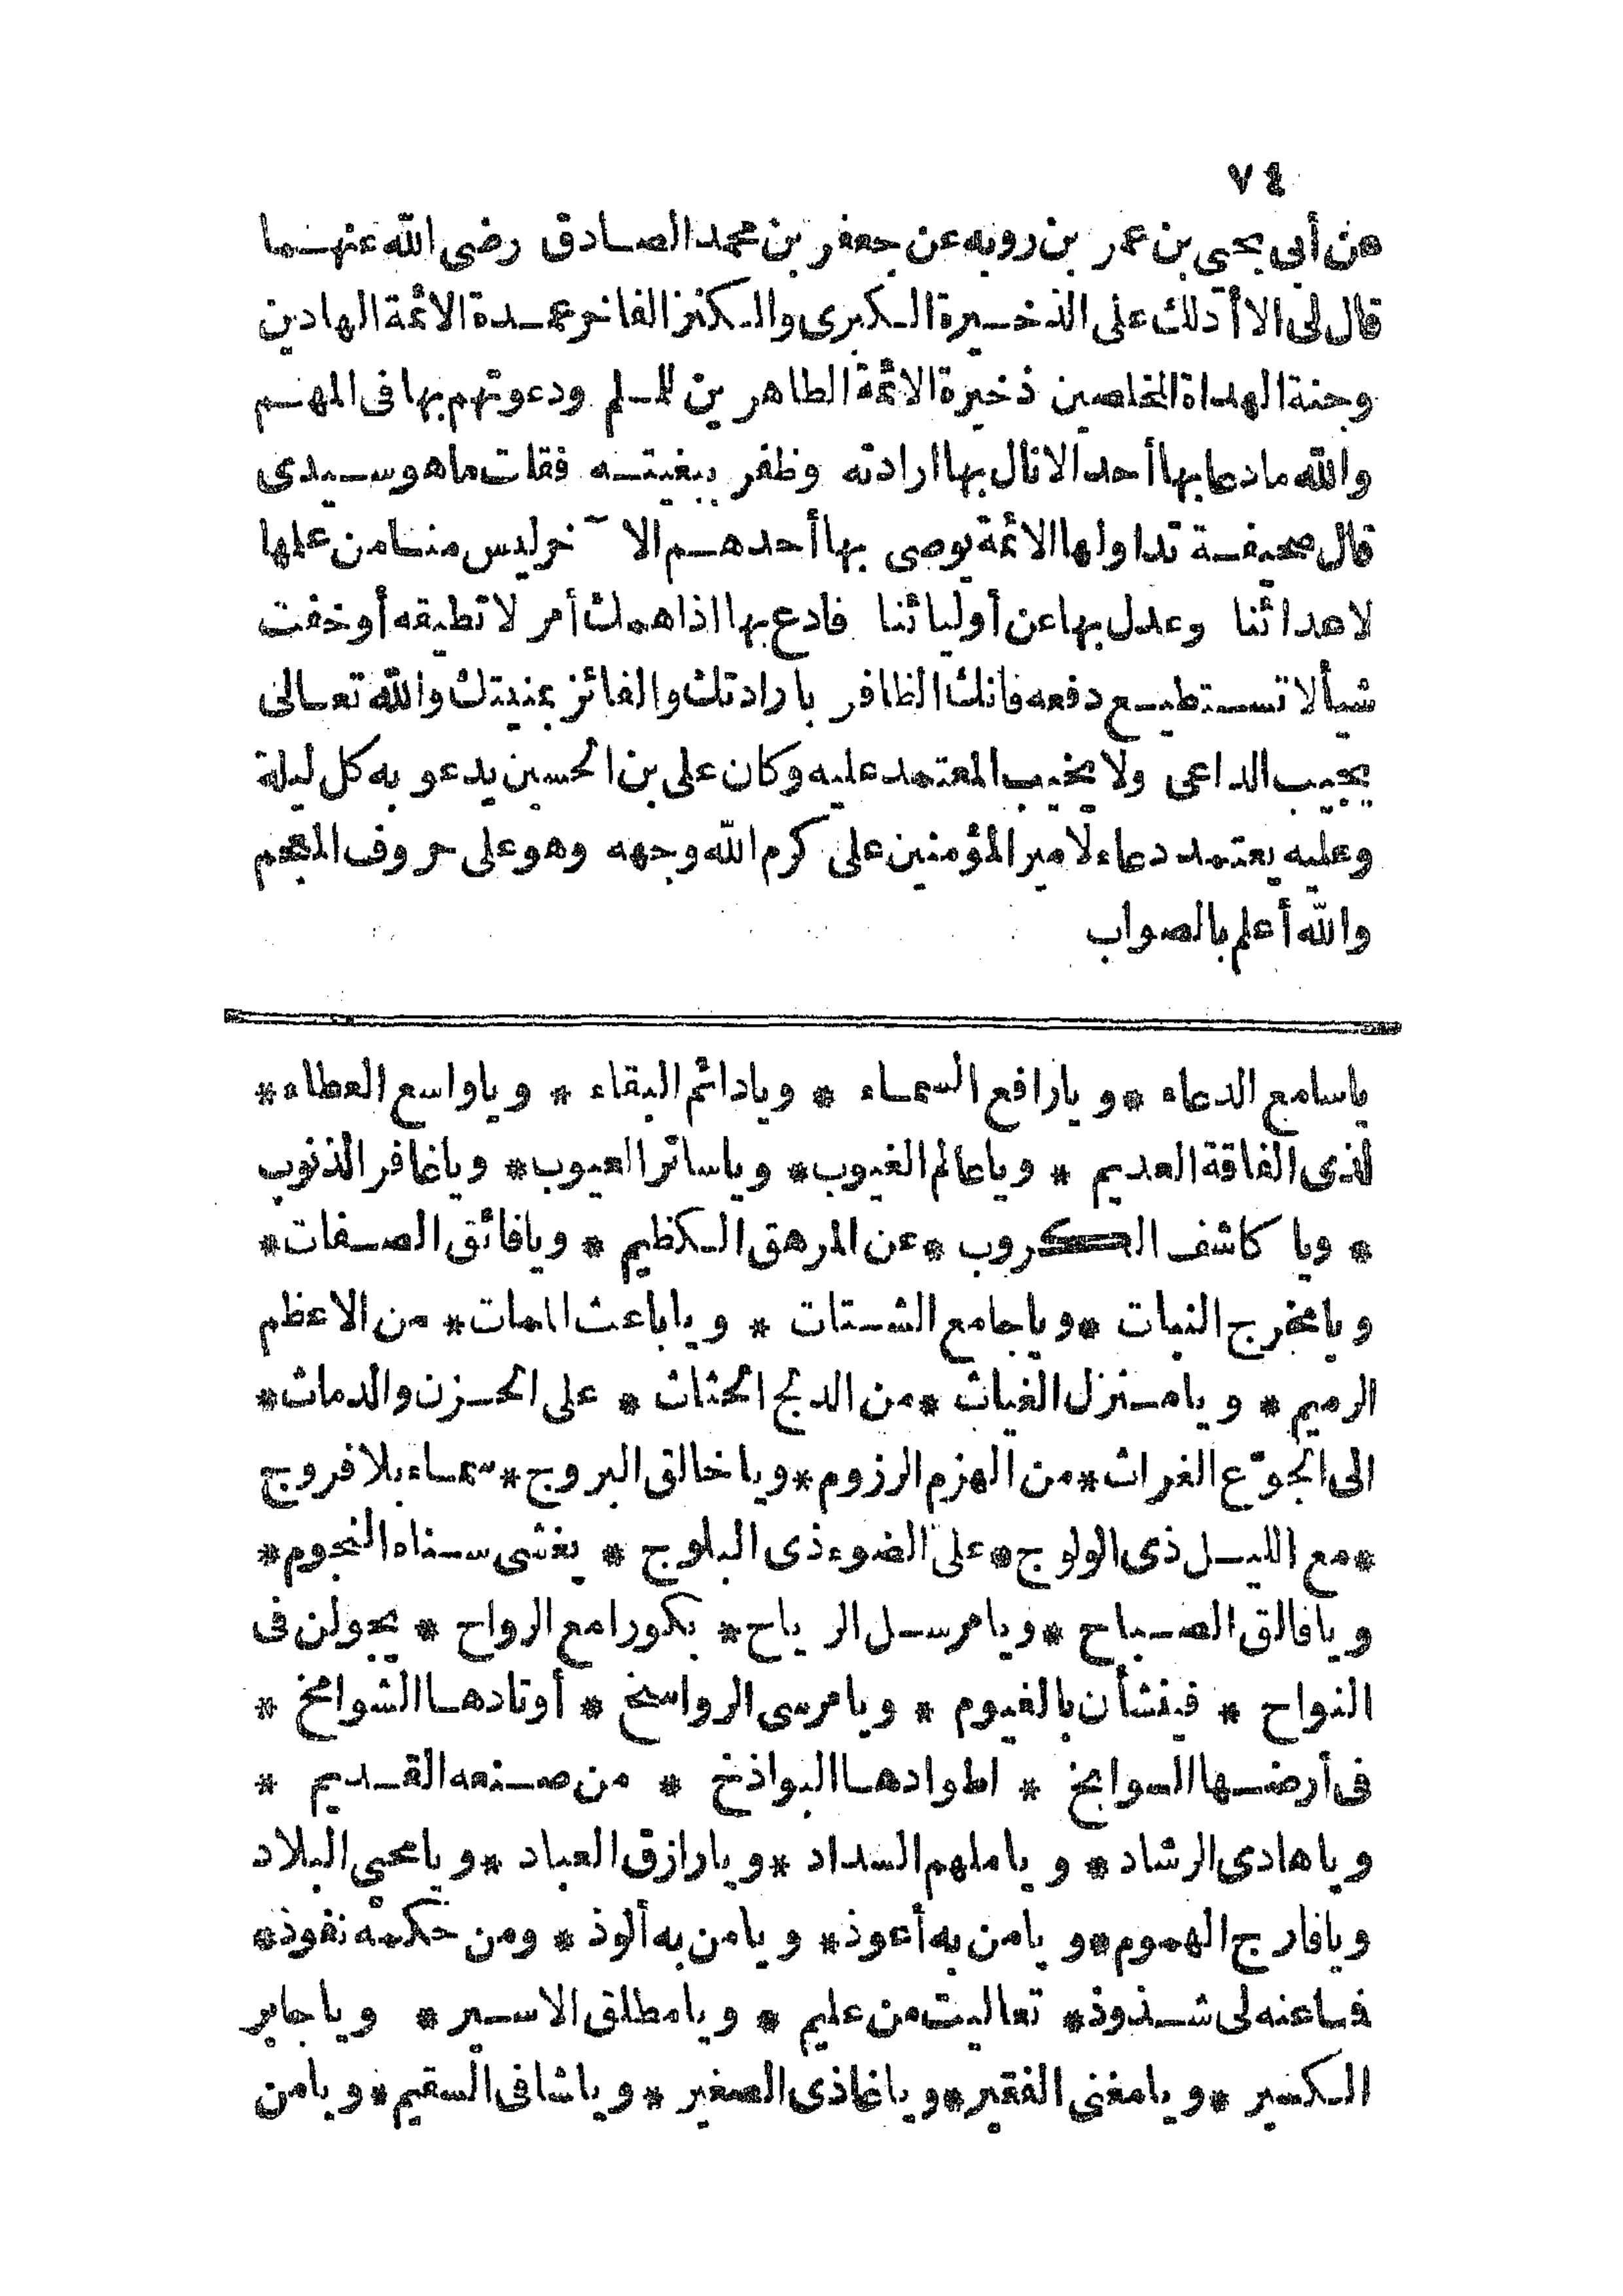 ٧٤
عن أبى يحيى بن عمر بن رويه عن جعفر بن محمد الصادق رضى الله عنهما
قال لى الا أدلك على الذخيرة الكبرى والكنز الفاخر عمدة الائمة الهادين
وجنة الهداة المخلصين ذخيرة الائمة الطاهرين للملم ودعوتهم بها فى المهم
والله مادعا بها أحد الا نال بها ارادته وظفر ببغيته فقلت ماهو سيدى
قال صحيفة تداولها الائمة يوصى بها أحدهم الآخر ليس منا من علمها
لاعدائنا وعدل بها عن أوليائنا فادع بها اذا همك أمر لا تطيقه أو خفت
شيأ لا تستطيع دفعه فانك الظافر بارادتك والفائز بمنيتك والله تعالى
يجيب الداعى ولا يخيب المعتمد عليه وكان على بن الحسين يدعو به كل ليلة
وعليه يعتمد دعاء لامير المؤمنين على كرم الله وجهه وهو على حروف المعجم
والله أعلم بالصواب
ياسامع الدعاء * ويارافع السماء * ويادائم البقاء * وياواسع العطاء *
لذى الفاقة العديم * وياعالم الغيوب * وياساتر العيوب * وياغافر الذنوب
* ويا كاشف الكروب * عن المرهق الكظيم * ويافائق الصفات *
ويامخرج النبات * وياجامع الشتات * وياباعث الممات * من الاعظم
الرميم * ويامنزل الغياث * من الدلج الحثاث * على الحزن والدماث *
الى الجوّع الغراث * من الهزم الرزوم * وياخالق البروج * سماء بلا فروج
* مع الليل ذى الولوج * على الضوء ذى البلوج * يغشى سناه النجوم *
ويافالق الصباح * ويامرسل الرياح * بكورا مع الرواح * يجولن فى
النواح * فينشأن بالغيوم * ويامرسى الرواسخ * أوتادها الشوامخ *
فى أرضها السوابخ * اطوادها البواذخ * من صنعه القديم *
وياهادى الرشاد * وياملهم السداد * ويارازق العباد * ويامحيى البلاد
ويافارج الهموم * ويامن به أعوذ * ويامن به ألوذ * ومن حكمه نفوذ *
فما عنه لى شذوذ * تعاليت من عليم * ويامطلق الاسير * وياجابر
الكسير * ويامغنى الفقير * وياغاذى الصغير * وياشافى السقيم * ويامن